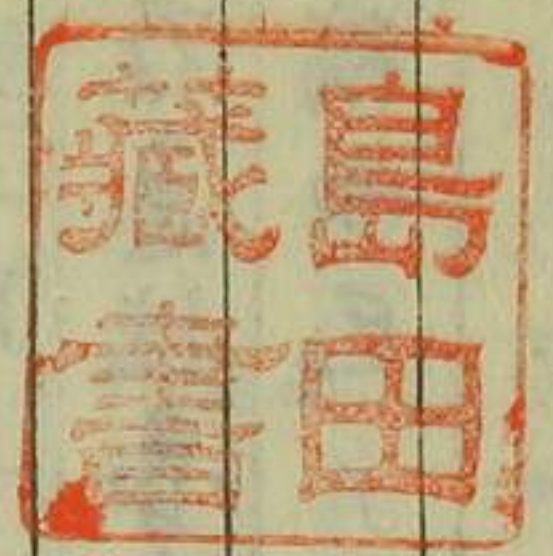 島田
藏書